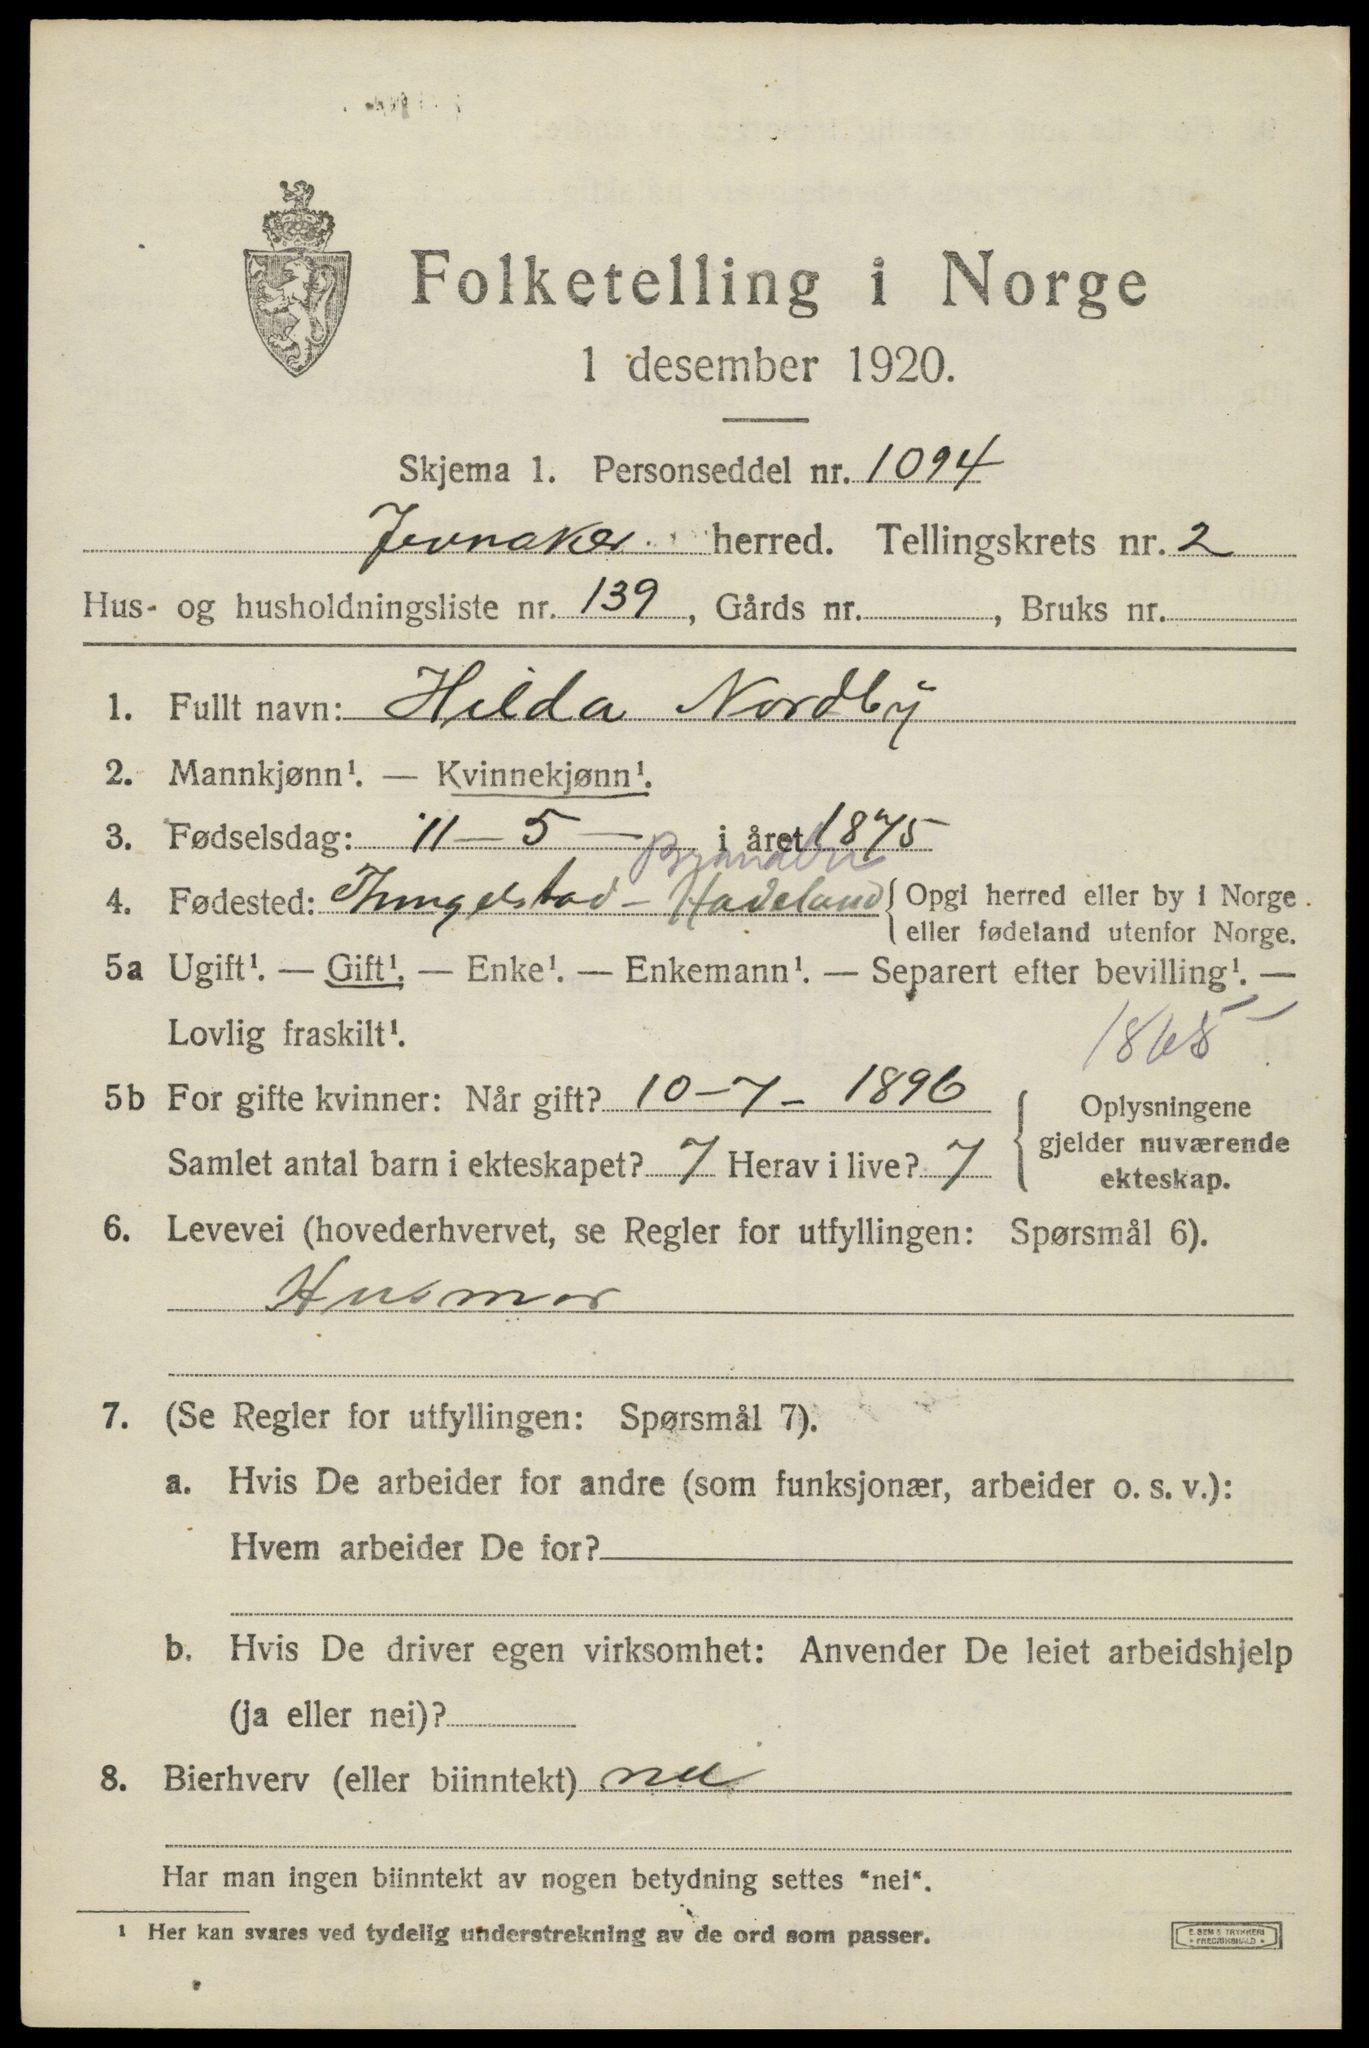 Folketelling i Norge
1 desember 1920.
Skjema 1. Personseddel nr. 1094
Jevnaker herred. Tellingskrets nr. 2
Hus- og husholdningsliste nr. 139, Gårds nr. , Bruks nr.
1. Fullt navn: Hilda Nordby
2. Mannkjønn¹. — Kvinnekjønn¹.
3. Fødselsdag: 11 — 5 — i året 1875
Brandbu
4. Fødested: Thingelstad - Hadeland { Opgi herred eller by i Norge
eller fødeland utenfor Norge.
5a Ugift¹. — Gift¹. — Enke¹. — Enkemann¹. — Separert efter bevilling¹. —
Lovlig fraskilt¹.
1865
5b For gifte kvinner: Når gift? 10-7- 1896
Samlet antal barn i ekteskapet? 7 Herav i live? 7
Oplysningene
gjelder nuværende
ekteskap.
6. Levevei (hovederhvervet, se Regler for utfyllingen: Spørsmål 6).
Husmor
7. (Se Regler for utfyllingen: Spørsmål 7).
a. Hvis De arbeider for andre (som funksjonær, arbeider o. s. v.):
Hvem arbeider De for?
b. Hvis De driver egen virksomhet: Anvender De leiet arbeidshjelp
(ja eller nei)?
8. Bierhverv (eller biinntekt) nei
Har man ingen biinntekt av nogen betydning settes "nei".
¹ Her kan svares ved tydelig understrekning av de ord som passer.
E. SEM'S TRYKKERI
FREDRIKSHALD